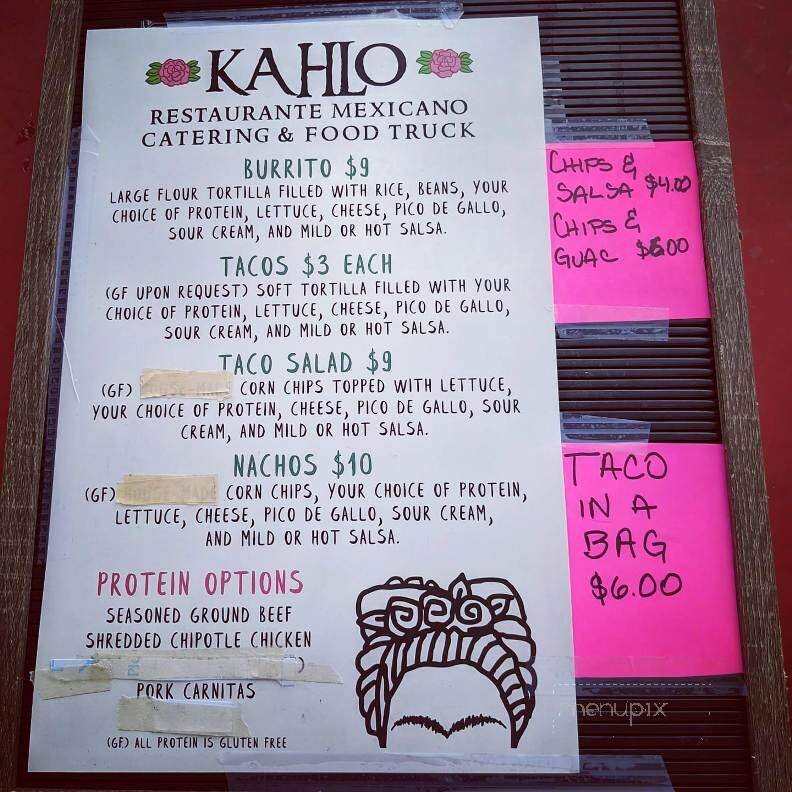 KAHLO
RESTAURANTE MEXICANO
CATERING & FOOD TRUCK
BURRITO $9
LARGE FLOUR TORTILLA FILLED WITH RICE, BEANS, YOUR
CHOICE OF PROTEIN, LETTUCE, CHEESE, PICO DE GALLO,
SOUR CREAM, AND MILD OR HOT SALSA.
TACOS $3 EACH
(GF UPON REQUEST) SOFT TORTILLA FILLED WITH YOUR
CHOICE OF PROTEIN, LETTUCE, CHEESE, PICO DE GALLO,
SOUR CREAM, AND MILD OR HOT SALSA.
TACO SALAD $9
(GF) HOUSE-MADE CORN CHIPS TOPPED WITH LETTUCE,
YOUR CHOICE OF PROTEIN, CHEESE, PICO DE GALLO, SOUR
CREAM, AND MILD OR HOT SALSA.
NACHOS $10
(GF) HOUSE MADE CORN CHIPS, YOUR CHOICE OF PROTEIN,
LETTUCE, CHEESE, PICO DE GALLO, SOUR CREAM,
AND MILD OR HOT SALSA.
PROTEIN OPTIONS
SEASONED GROUND BEEF
SHREDDED CHIPOTLE CHICKEN
PORK CARNITAS
(GF) ALL PROTEIN IS GLUTEN FREE
CHIPS &
SALSA $4.00
CHIPS &
GUAC $6.00
TACO
IN A
BAG
$6.00
menupix